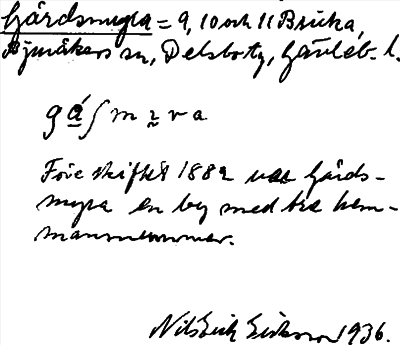 Gårdsmyra = 9, 10 och 11 Bricka,
Bjuråkers sn, Delsbo tg, Gävleb. l.
Före skiftet 1882 var Gårds-
myra en by med tre hem-
mansnummer.
Nils Erik Eriksson 1936.